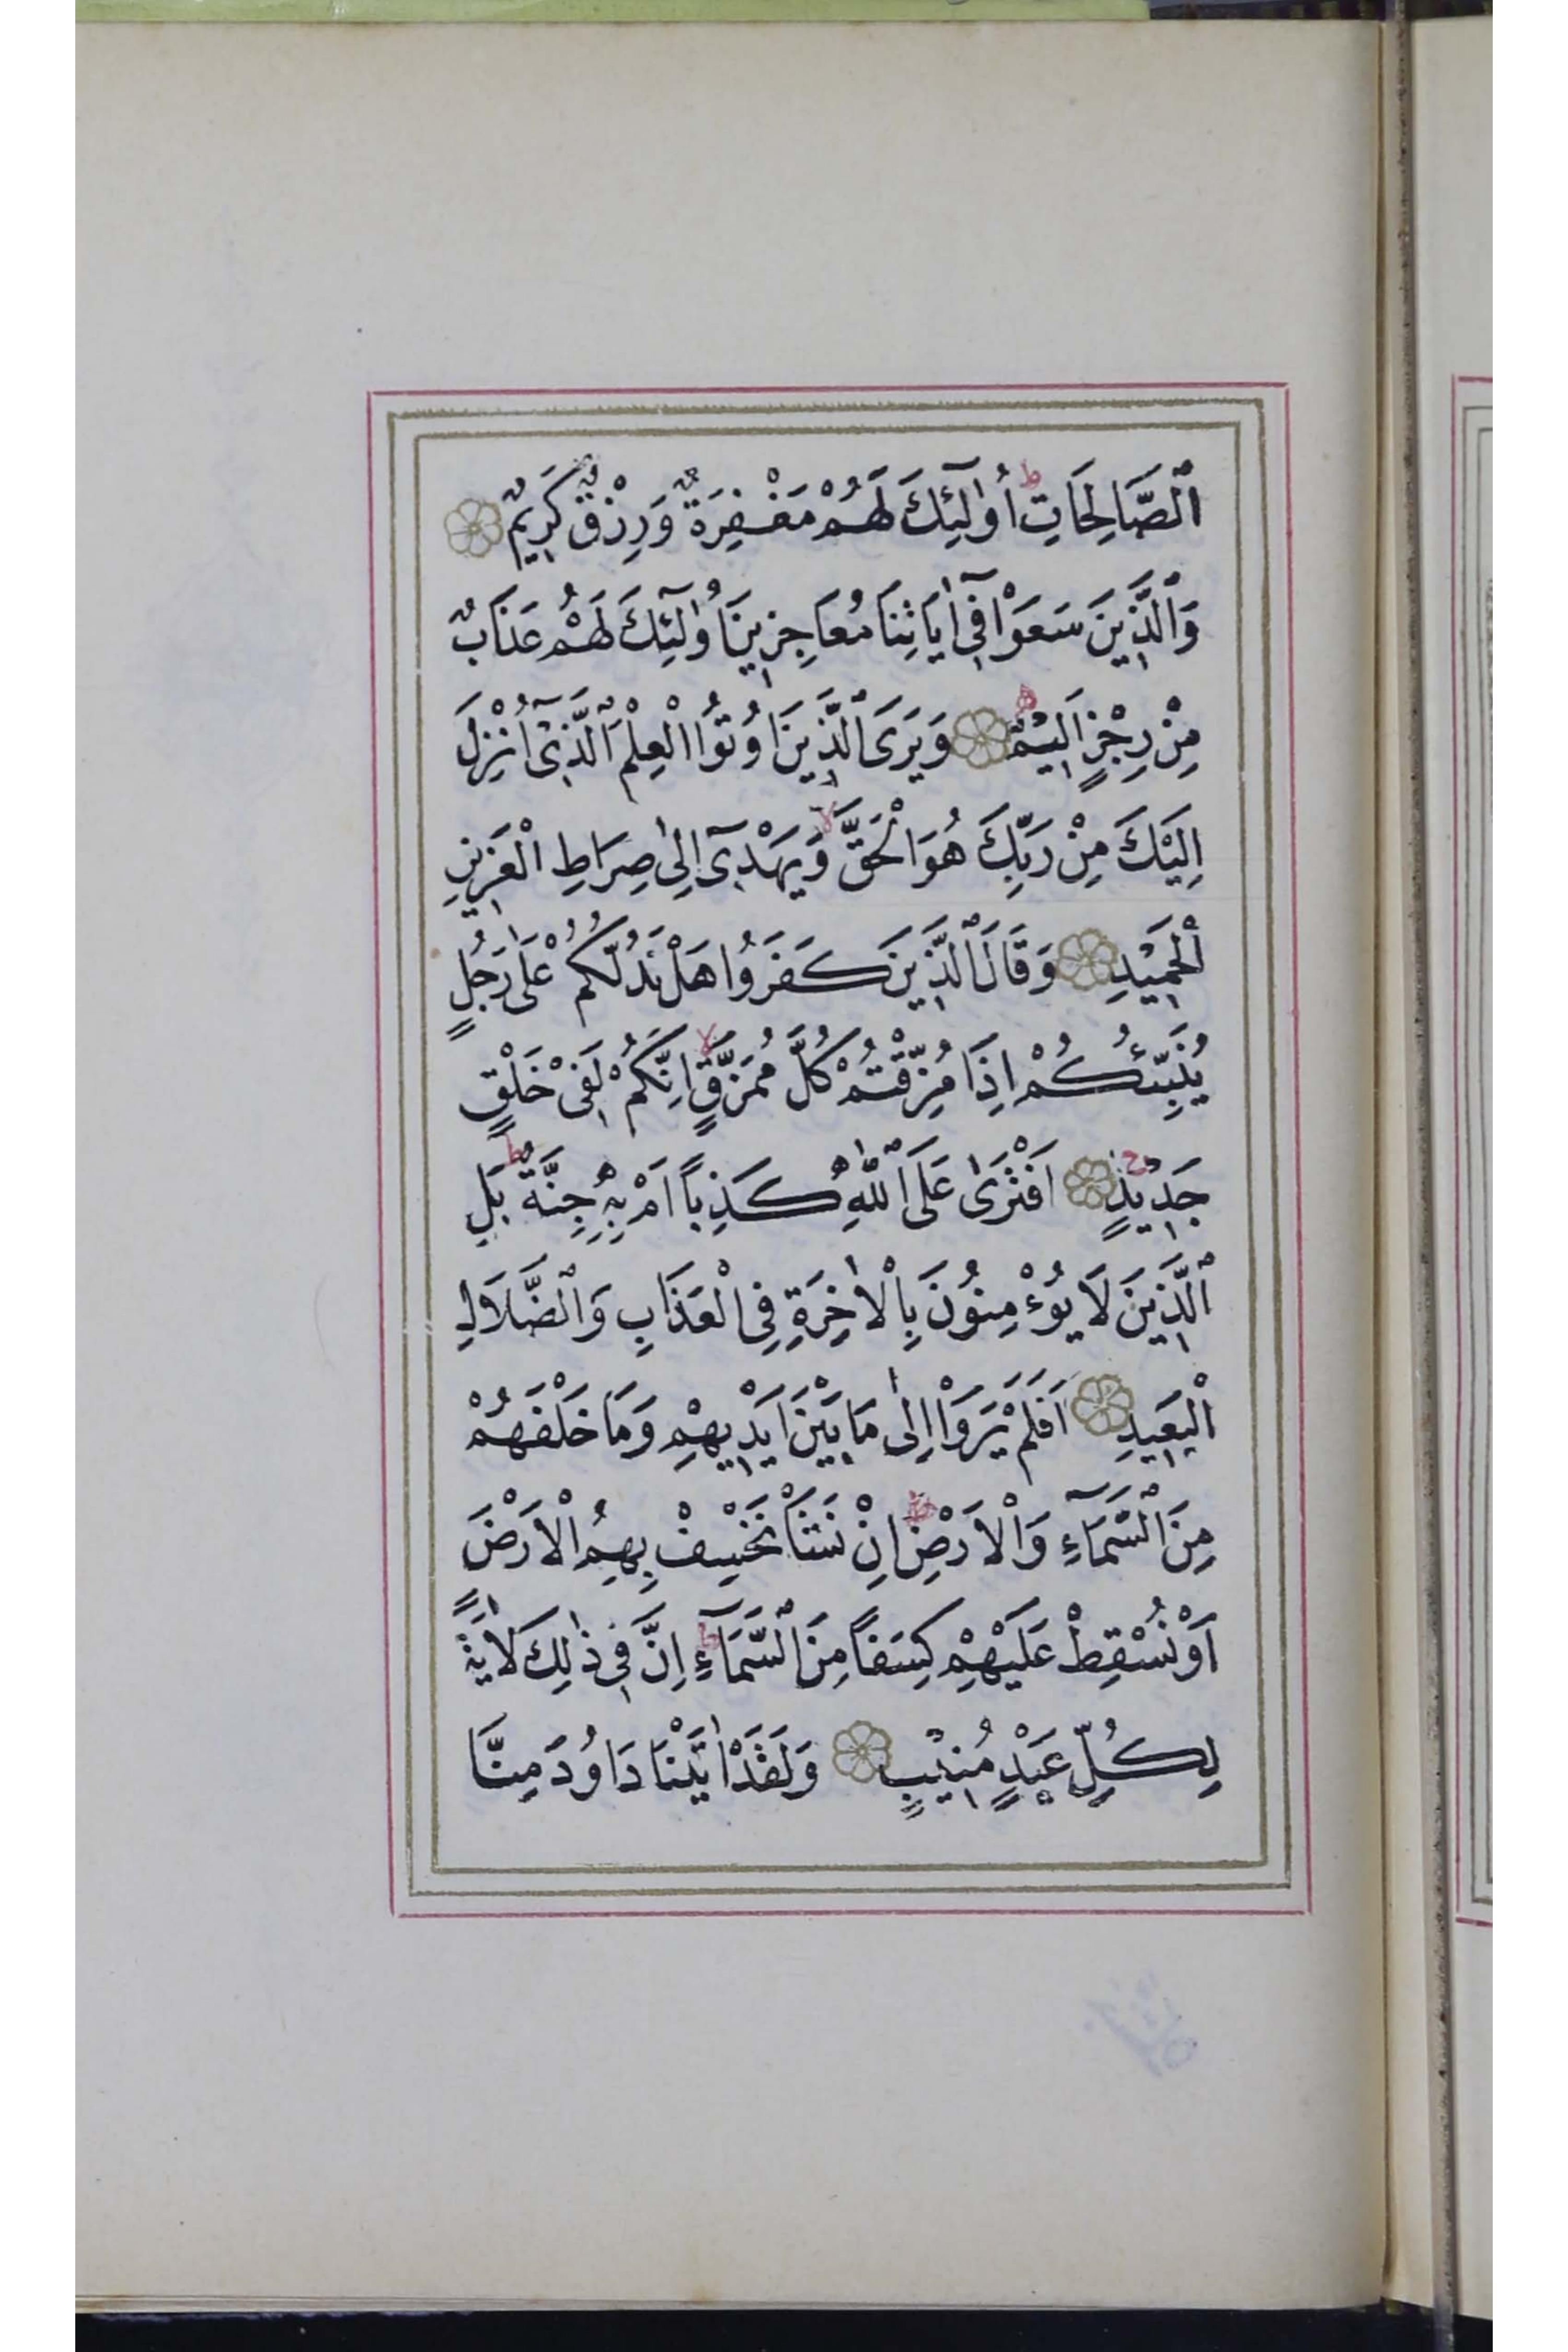 ٱلصَّالِحَاتِ ط اُولٰٓئِكَ لَهُمْ مَغْفِرَةٌ وَرِزْقٌ كَرِيمٌ
وَٱلَّذِينَ سَعَوْا فِٓى اٰيَاتِنَا مُعَاجِزِينَ اُولٰٓئِكَ لَهُمْ عَذَابٌ
مِنْ رِجْزٍ اَلِيمٌ وَيَرَى ٱلَّذِينَ اُوتُوا الْعِلْمَ ٱلَّذِىٓ اُنْزِلَ
اِلَيْكَ مِنْ رَبِّكَ هُوَ الْحَقَّ لا وَيَهْدِىٓ اِلٰى صِرَاطِ الْعَزِيزِ
الْحَمِيدِ وَقَالَ ٱلَّذِينَ كَفَرُوا هَلْ نَدُلُّكُمْ عَلٰى رَجُلٍ
يُنَبِّئُكُمْ اِذَا مُزِّقْتُمْ كُلَّ مُمَزَّقٍ لا اِنَّكُمْ لَفِى خَلْقٍ
جَدِيدٍ ج اَفْتَرٰى عَلَى ٱللّٰهِ كَذِباً اَمْ بِهٖ جِنَّةٌ ط بَلِ
ٱلَّذِينَ لَا يُؤْمِنُونَ بِالْاٰخِرَةِ فِى الْعَذَابِ وَٱلضَّلَالِ
الْبَعِيدِ اَفَلَمْ يَرَوْا اِلٰى مَا بَيْنَ اَيْدِيهِمْ وَمَا خَلْفَهُمْ
مِنَ ٱلسَّمَٓاءِ وَالْاَرْضِ ط اِنْ نَشَأْ نَخْسِفْ بِهِمُ الْاَرْضَ
اَوْ نُسْقِطْ عَلَيْهِمْ كِسَفاً مِنَ ٱلسَّمَٓاءِ ط اِنَّ فِى ذٰلِكَ لَاٰيَةً
لِكُلِّ عَبْدٍ مُنِيبٍ وَلَقَدْ اٰتَيْنَا دَاوُدَ مِنَّا